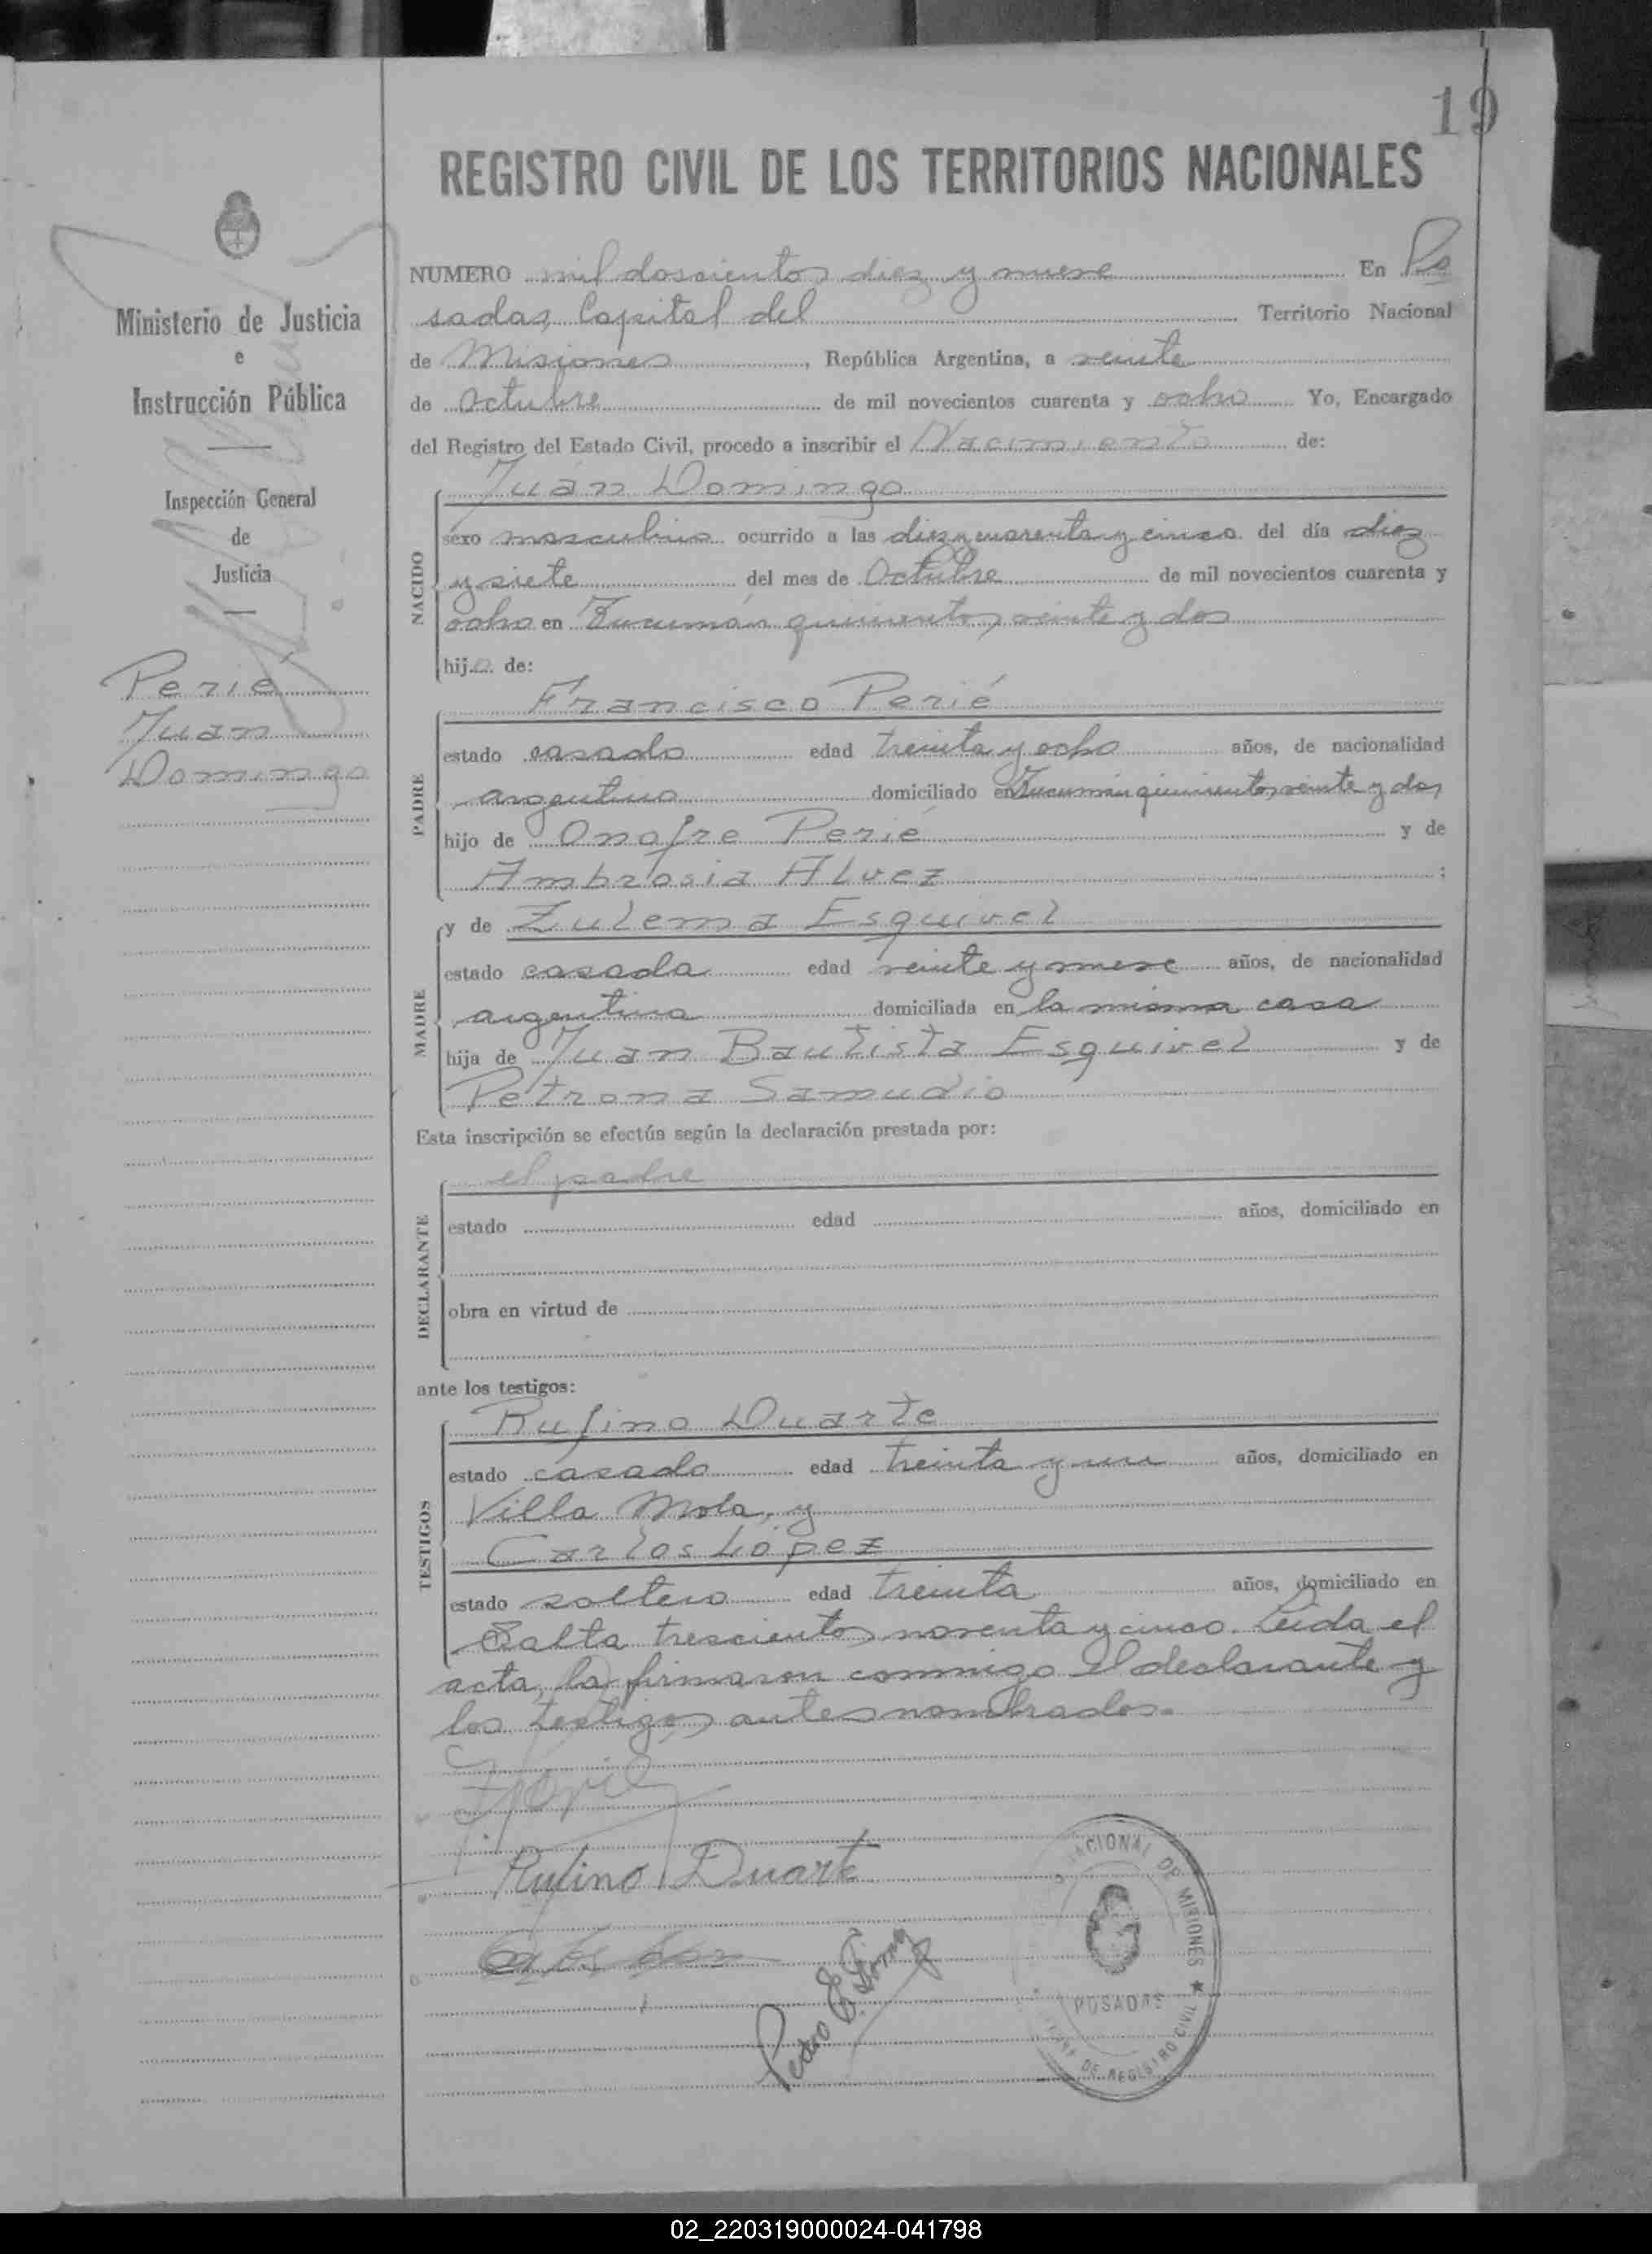 19
REGISTRO CIVIL DE LOS TERRITORIOS NACIONALES
Ministerio de Justicia
e
Instrucción Pública
Inspección General
de
Justicia
Perié
Juan
Domingo
NUMERO mil doscientos diez y nueve En Po
sadas, Capital del Territorio Nacional
de Misiones, República Argentina, a veinte
de Octubre de mil novecientos cuarenta y ocho Yo, Encargado
del Registro del Estado Civil, procedo a inscribir el Nacimiento de:
NACIDO
Juan Domingo
sexo masculino ocurrido a las diez y cuarenta y cinco del día diez
y siete del mes de Octubre de mil novecientos cuarenta y
ocho en Tucumán quinientos veinte y dos
hijo de:
PADRE
Francisco Perié
estado casado edad treinta y ocho años, de nacionalidad
argentino domiciliado en Tucumán quinientos veinte y dos,
hijo de Onofre Perié y de
Ambrosia Alvez ;
MADRE
y de Zulema Esquivel
estado casada edad veinte y nueve años, de nacionalidad
argentina domiciliada en la misma casa
hija de Juan Bautista Esquivel y de
Petrona Samudio
Esta inscripción se efectúa según la declaración prestada por:
DECLARANTE
el padre
estado edad años, domiciliado en
obra en virtud de
ante los testigos:
TESTIGOS
Rufino Duarte
estado casado edad treinta y un años, domiciliado en
Villa Mola, y
Carlos López
estado soltero edad treinta años, domiciliado en
Salta trescientos noventa y cinco. Leída el
acta, la firmaron conmigo el declarante y
los testigos antes nombrados.-
Rufino Duarte
Pedro E.
NACIONAL DE MISIONES
POSADAS
DE REGISTRO CIVIL
02_220319000024-041798